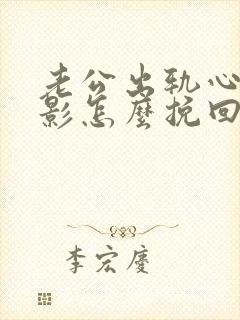 老公出轨心
影怎麼挽回
李宏慶